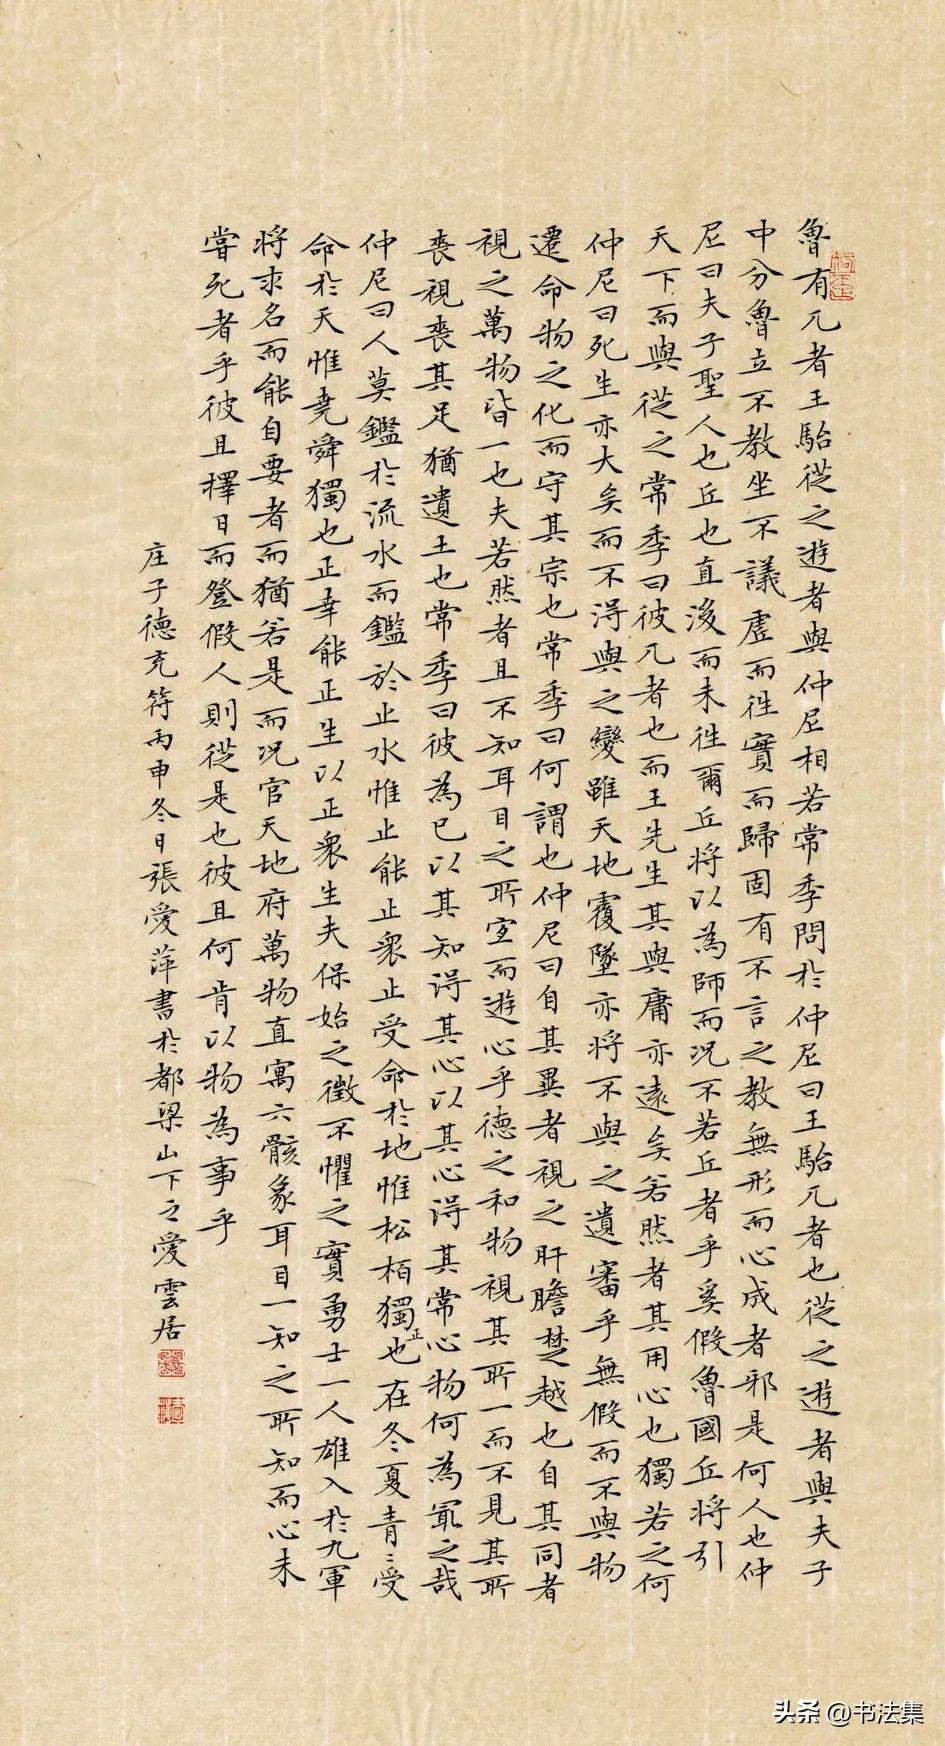 魯有兀者王駘從之遊者與仲尼相若常季問於仲尼曰王駘兀者也從之遊者與夫子
中分魯立不教坐不議虛而往實而歸固有不言之教無形而心成者邪是何人也仲
尼曰夫子聖人也丘也直後而未往爾丘將以為師而況不若丘者乎奚假魯國丘將引
天下而與從之常季曰彼兀者也而王先生其與庸亦遠矣若然者其用心也獨若之何
仲尼曰死生亦大矣而不得與之變雖天地覆墜亦將不與之遺審乎無假而不與物
遷命物之化而守其宗也常季曰何謂也仲尼曰自其異者視之肝膽楚越也自其同者
視之萬物皆一也夫若然者且不知耳目之所宜而遊心乎德之和物視其所一而不見其所
喪視喪其足猶遺土也常季曰彼為已以其知得其心以其心得其常心物何為冣之哉
仲尼曰人莫鑑於流水而鑑於止水惟止能止衆止受命於地惟松栢獨也正在冬夏青〻受
命於天惟堯舜獨也正幸能正生以正衆生夫保始之徵不懼之實勇士一人雄入於九軍
將求名而能自要者而猶若是而況官天地府萬物直寓六骸象耳目一知之所知而心未
嘗死者乎彼且擇日而登假人則從是也彼且何肯以物為事乎
庄子德充符丙申冬日張愛萍書於都梁山下之愛雲居
头条 @书法集